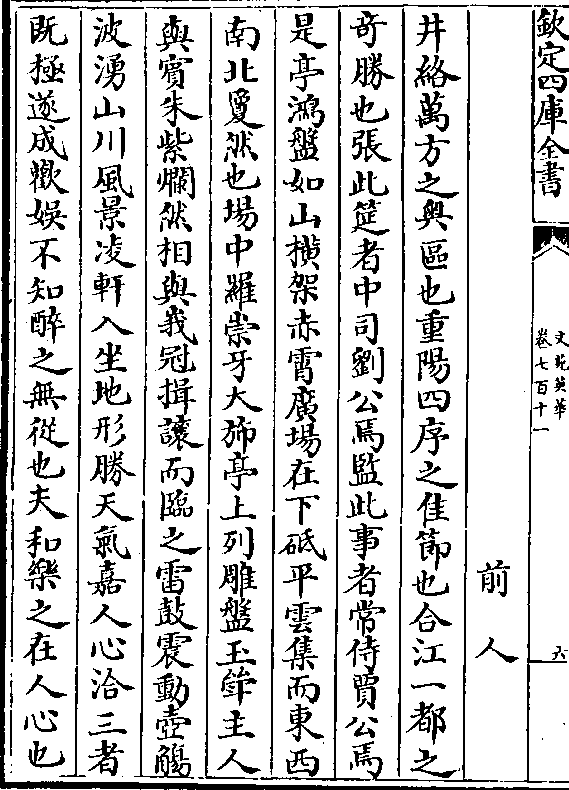 欽定四庫全書
文苑英華
卷七百十一
六
前人
井絡萬方之輿區也重陽四序之佳節也合江一都之
竒勝也張此筵者中司劉公焉監此事者常侍賈公焉
是亭鴻盤如山横架赤霄廣場在下砥平雲集而東西
南北敻然也場中羅崇牙大斾亭上列雕盤玉斝主人
與賓朱紫爛然相與峩冠揖讓而臨之雷鼓震動壺觴
波湧山川風景凌軒入坐地形勝天氣嘉人心洽三者
既極遂成歡娱不知醉之無從也夫和樂之在人心也